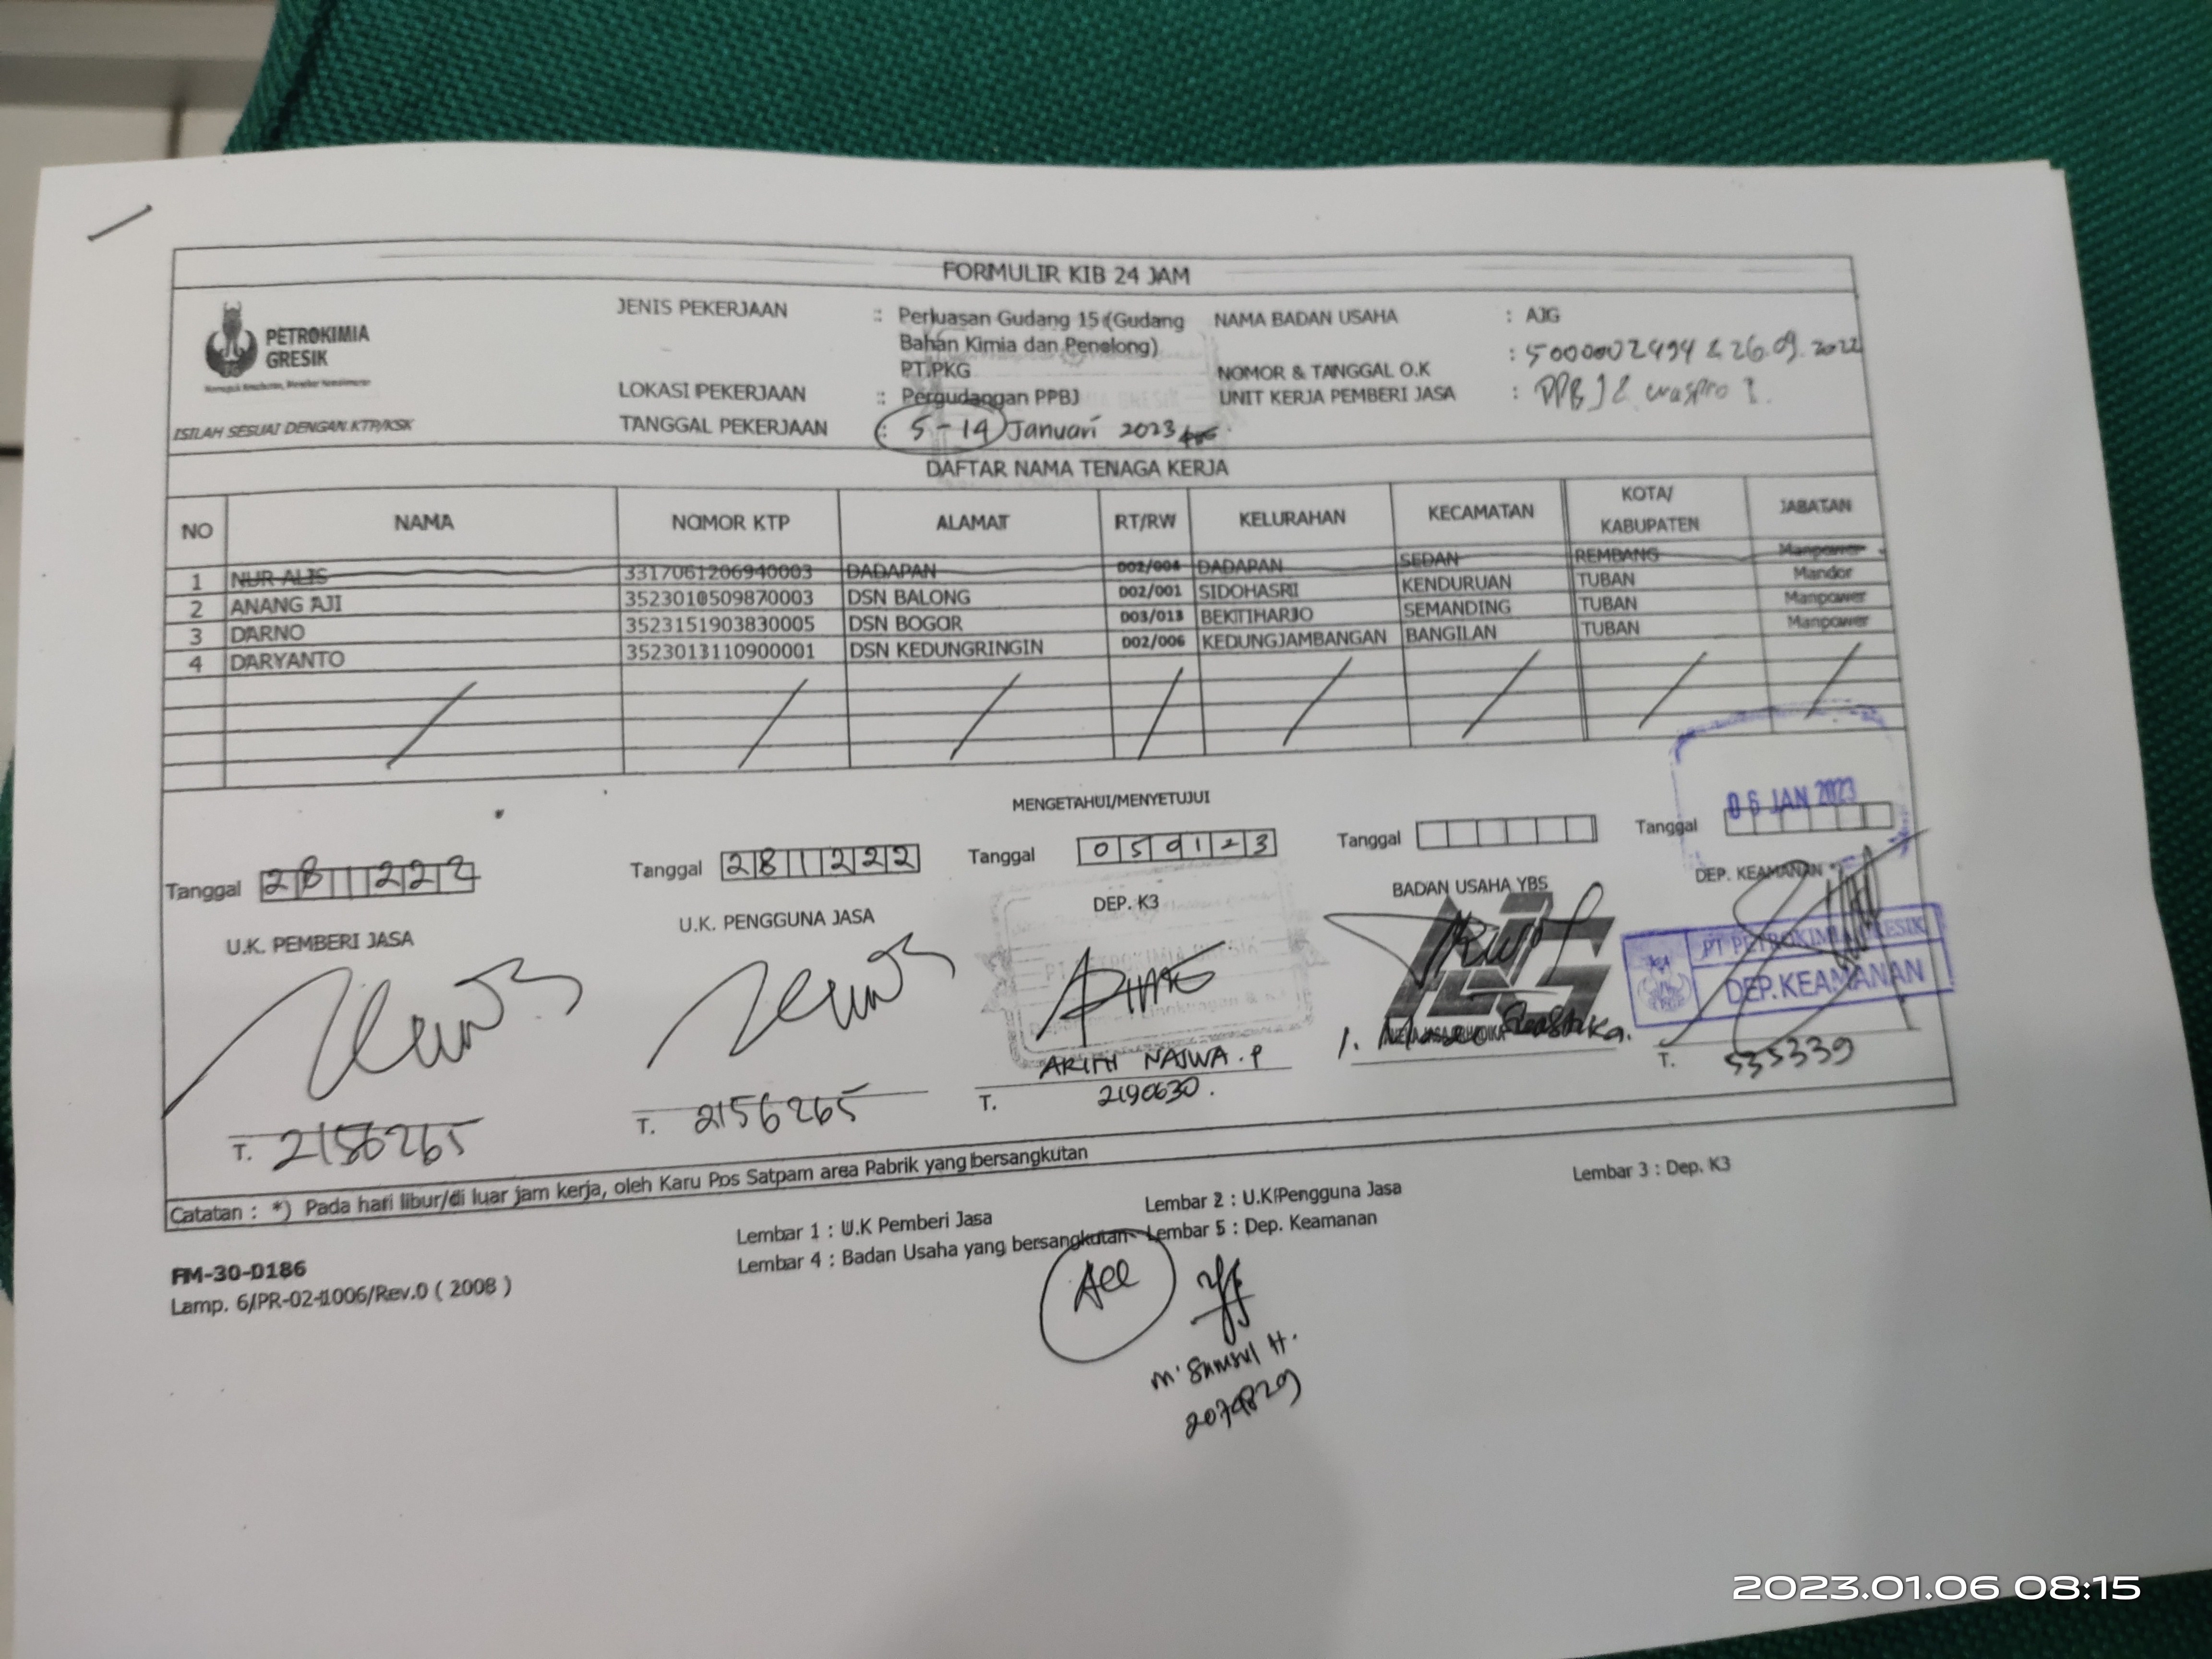 FORMULIR KIB 24 JAM
PETROKIMIA
GRESIK
ISILAH SESUAI DENGAN KTP/KSK
JENIS PEKERJAAN : Perluasan Gudang 15 (Gudang
Bahan Kimia dan Penolong)
PT.PKG
LOKASI PEKERJAAN : Pergudangan PPBJ
TANGGAL PEKERJAAN : 5 - 14 Januari 2023
NAMA BADAN USAHA : AJG
NOMOR & TANGGAL O.K : 5000002494 & 26.09.2022
UNIT KERJA PEMBERI JASA : PPBJ & waspro I.
DAFTAR NAMA TENAGA KERJA
NO NAMA NOMOR KTP ALAMAT RT/RW KELURAHAN KECAMATAN KOTA/ KABUPATEN JABATAN
1 NUR ALIS 3317061206940003 DADAPAN 002/004 DADAPAN SEDAN REMBANG Manpower
2 ANANG AJI 3523010509870003 DSN BALONG 002/001 SIDOHASRI KENDURUAN TUBAN Mandor
3 DARNO 3523151903830005 DSN BOGOR 003/013 BEKTIHARJO SEMANDING TUBAN Manpower
4 DARYANTO 3523013110900001 DSN KEDUNGRINGIN 002/006 KEDUNGJAMBANGAN BANGILAN TUBAN Manpower
MENGETAHUI/MENYETUJUI
Tanggal 281222
U.K. PEMBERI JASA
T. 2156265
Tanggal 281222
U.K. PENGGUNA JASA
T. 2156265
Tanggal 050123
DEP. K3
PT PETROKIMIA GRESIK
ARINI NAJWA . P
T. 2190630.
Tanggal
BADAN USAHA YBS
Tanggal 06 JAN 2023
DEP. KEAMANAN
PT PETROKIMIA GRESIK
DEP. KEAMANAN
T. 535339
Catatan : *) Pada hari libur/di luar jam kerja, oleh Karu Pos Satpam area Pabrik yang bersangkutan
Lembar 1 : U.K Pemberi Jasa
Lembar 2 : U.K Pengguna Jasa
Lembar 3 : Dep. K3
Lembar 4 : Badan Usaha yang bersangkutan
Lembar 5 : Dep. Keamanan
FM-30-0186
Lamp. 6/PR-02-1006/Rev.0 ( 2008 )
Acc
M. Samsul H.
2074829
2023.01.06 08:15